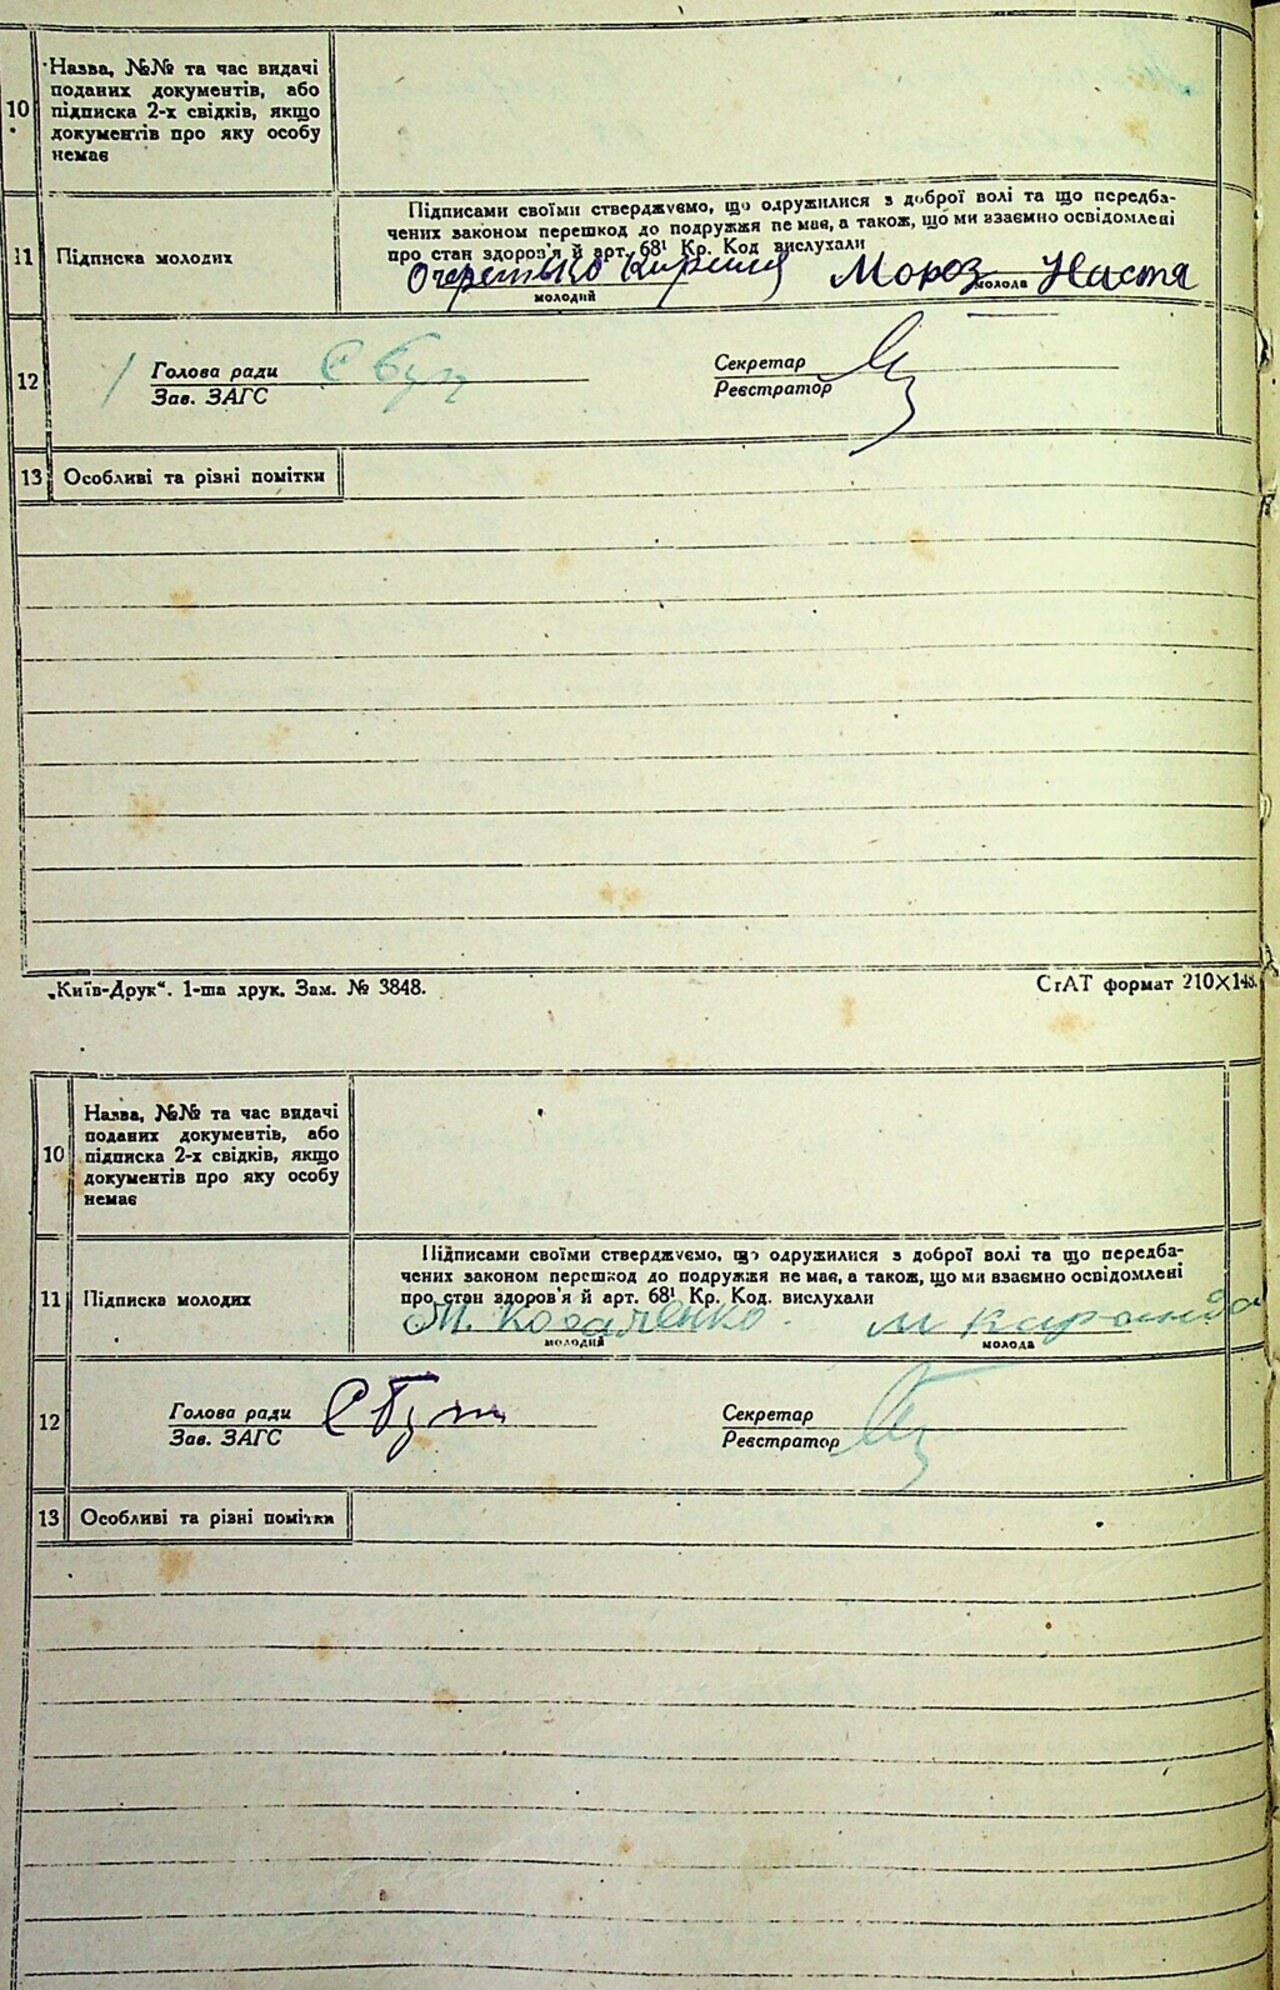 10
Назва, №№ та час видачі
поданих документів, або
підписка 2-х свідків, якщо
документів про яку особу
немає
11
Підписка молодих
Підписами своїми стверджуємо, що одружилися з доброї волі та що передба-
чених законом перешкод до подружжя не має, а також, що ми взаємно освідомлені
про стан здоров'я й арт. 68¹ Кр. Код вислухали
Очеретько Мороз Настя
молодий молода
12
Голова ради
Зав. ЗАГС
Секретар
Реєстратор
13 Особливі та різні помітки
„Київ-Друк“. 1-ша друк. Зам. № 3848.
СгАТ формат 210×148.
10
Назва, №№ та час видачі
поданих документів, або
підписка 2-х свідків, якщо
документів про яку особу
немає
11
Підписка молодих
Підписами своїми стверджуємо, що одружилися з доброї волі та що передба-
чених законом перешкод до подружжя не має, а також, що ми взаємно освідомлені
про стан здоров'я й арт. 68¹ Кр. Код. вислухали
М. Коваленко. М
молодий молода
12
Голова ради
Зав. ЗАГС
Секретар
Реєстратор
13 Особливі та різні помітки